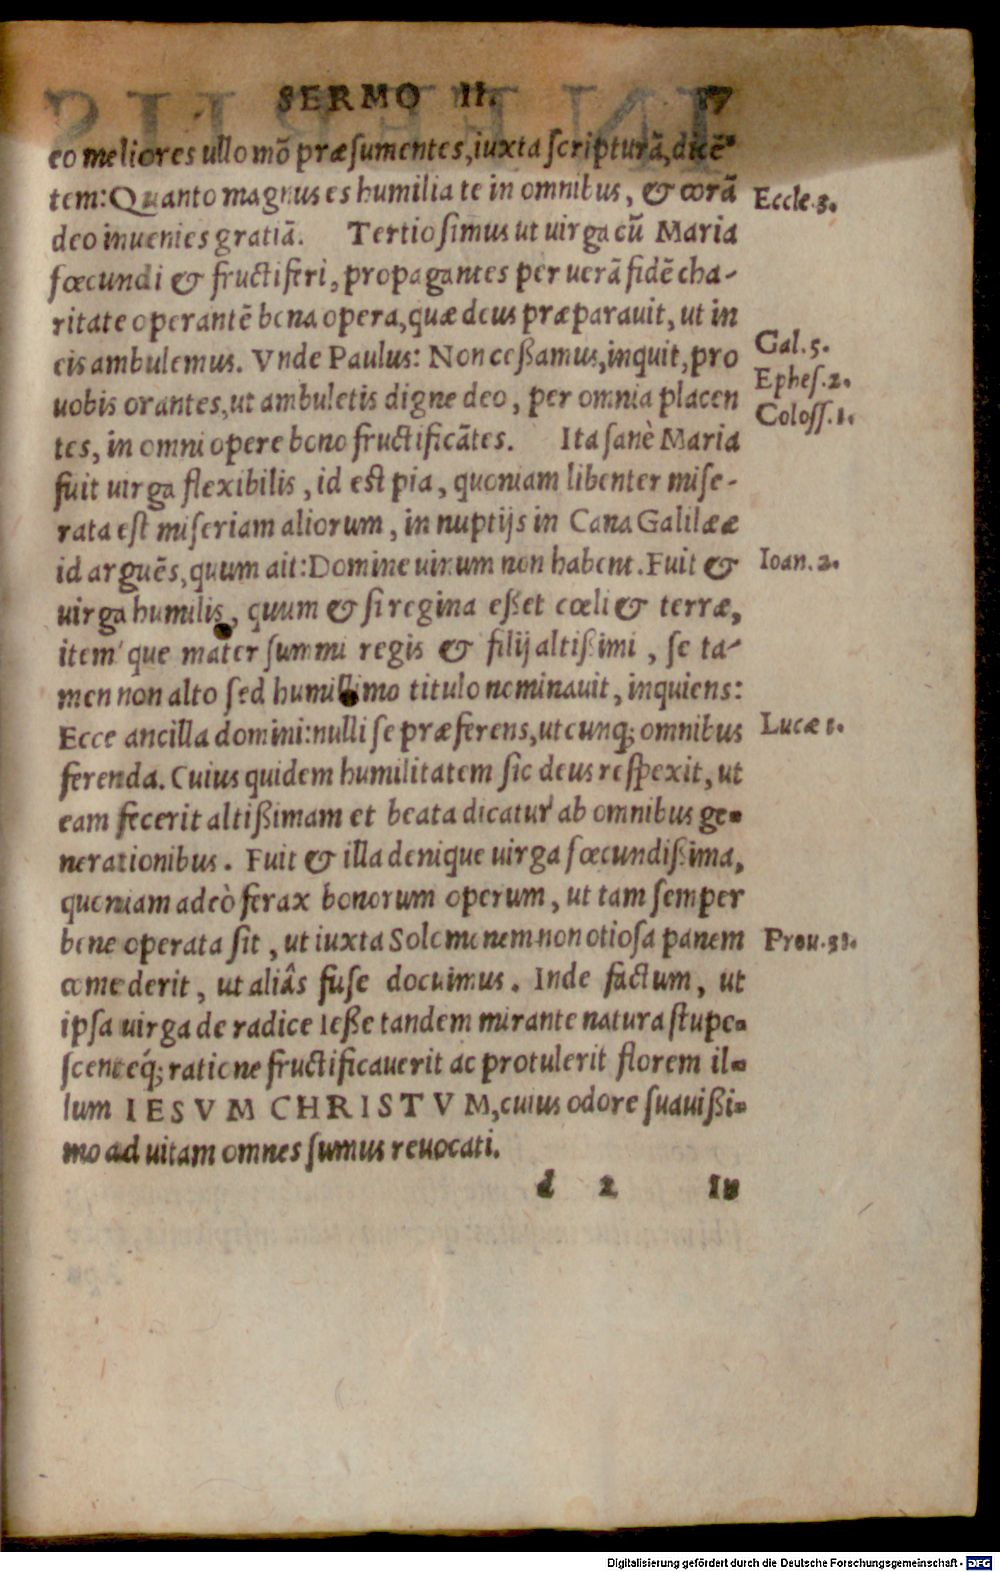 SERMO II.
eo meliores ullo mõ præsumentes, iuxta scripturã, dicẽ
tem: Quanto magnus es humilia te in omnibus, & corã
deo inuenies gratiã. Tertio simus ut uirga cũ Maria
fœcundi & fructiferi, propagantes per uerã fidẽ cha-
ritate operantẽ bona opera, quæ deus præparauit, ut in
eis ambulemus. Vnde Paulus: Non ceßamus, inquit, pro
uobis orantes, ut ambuletis digne deo, per omnia placen
tes, in omni opere bono fructificãtes. Ita sanè Maria
fuit uirga flexibilis, id est pia, quoniam libenter mise-
rata est miseriam aliorum, in nuptijs in Cana Galilææ
id arguẽs, quum ait: Domine uinum non habent. Fuit &
uirga humilis, quum & si regina eßet cœli & terræ,
item que mater summi regis & filij altißimi, se ta-
men non alto sed humillimo titulo nominauit, inquiens:
Ecce ancilla domini: nulli se præferens, utcunq; omnibus
ferenda. Cuius quidem humilitatem sic deus respexit, ut
eam fecerit altißimam et beata dicatur ab omnibus ge-
nerationibus. Fuit & illa denique uirga fœcundißima,
quoniam adeò ferax bonorum operum, ut tam semper
bene operata sit, ut iuxta Solomonem non otiosa panem
comederit, ut aliâs fuse docuimus. Inde factum, ut
ipsa uirga de radice Ieße tandem mirante natura stupe-
scenteq́; ratione fructificauerit ac protulerit florem il-
lum IESVM CHRISTVM, cuius odore suauißi-
mo ad uitam omnes sumus reuocati.
d 2 In
Eccle. 3.
Gal. 5.
Ephes. 2.
Coloss. 1.
Ioan. 2.
Lucæ 1.
Prou. 31.
Digitalisierung gefördert durch die Deutsche Forschungsgemeinschaft - DFG